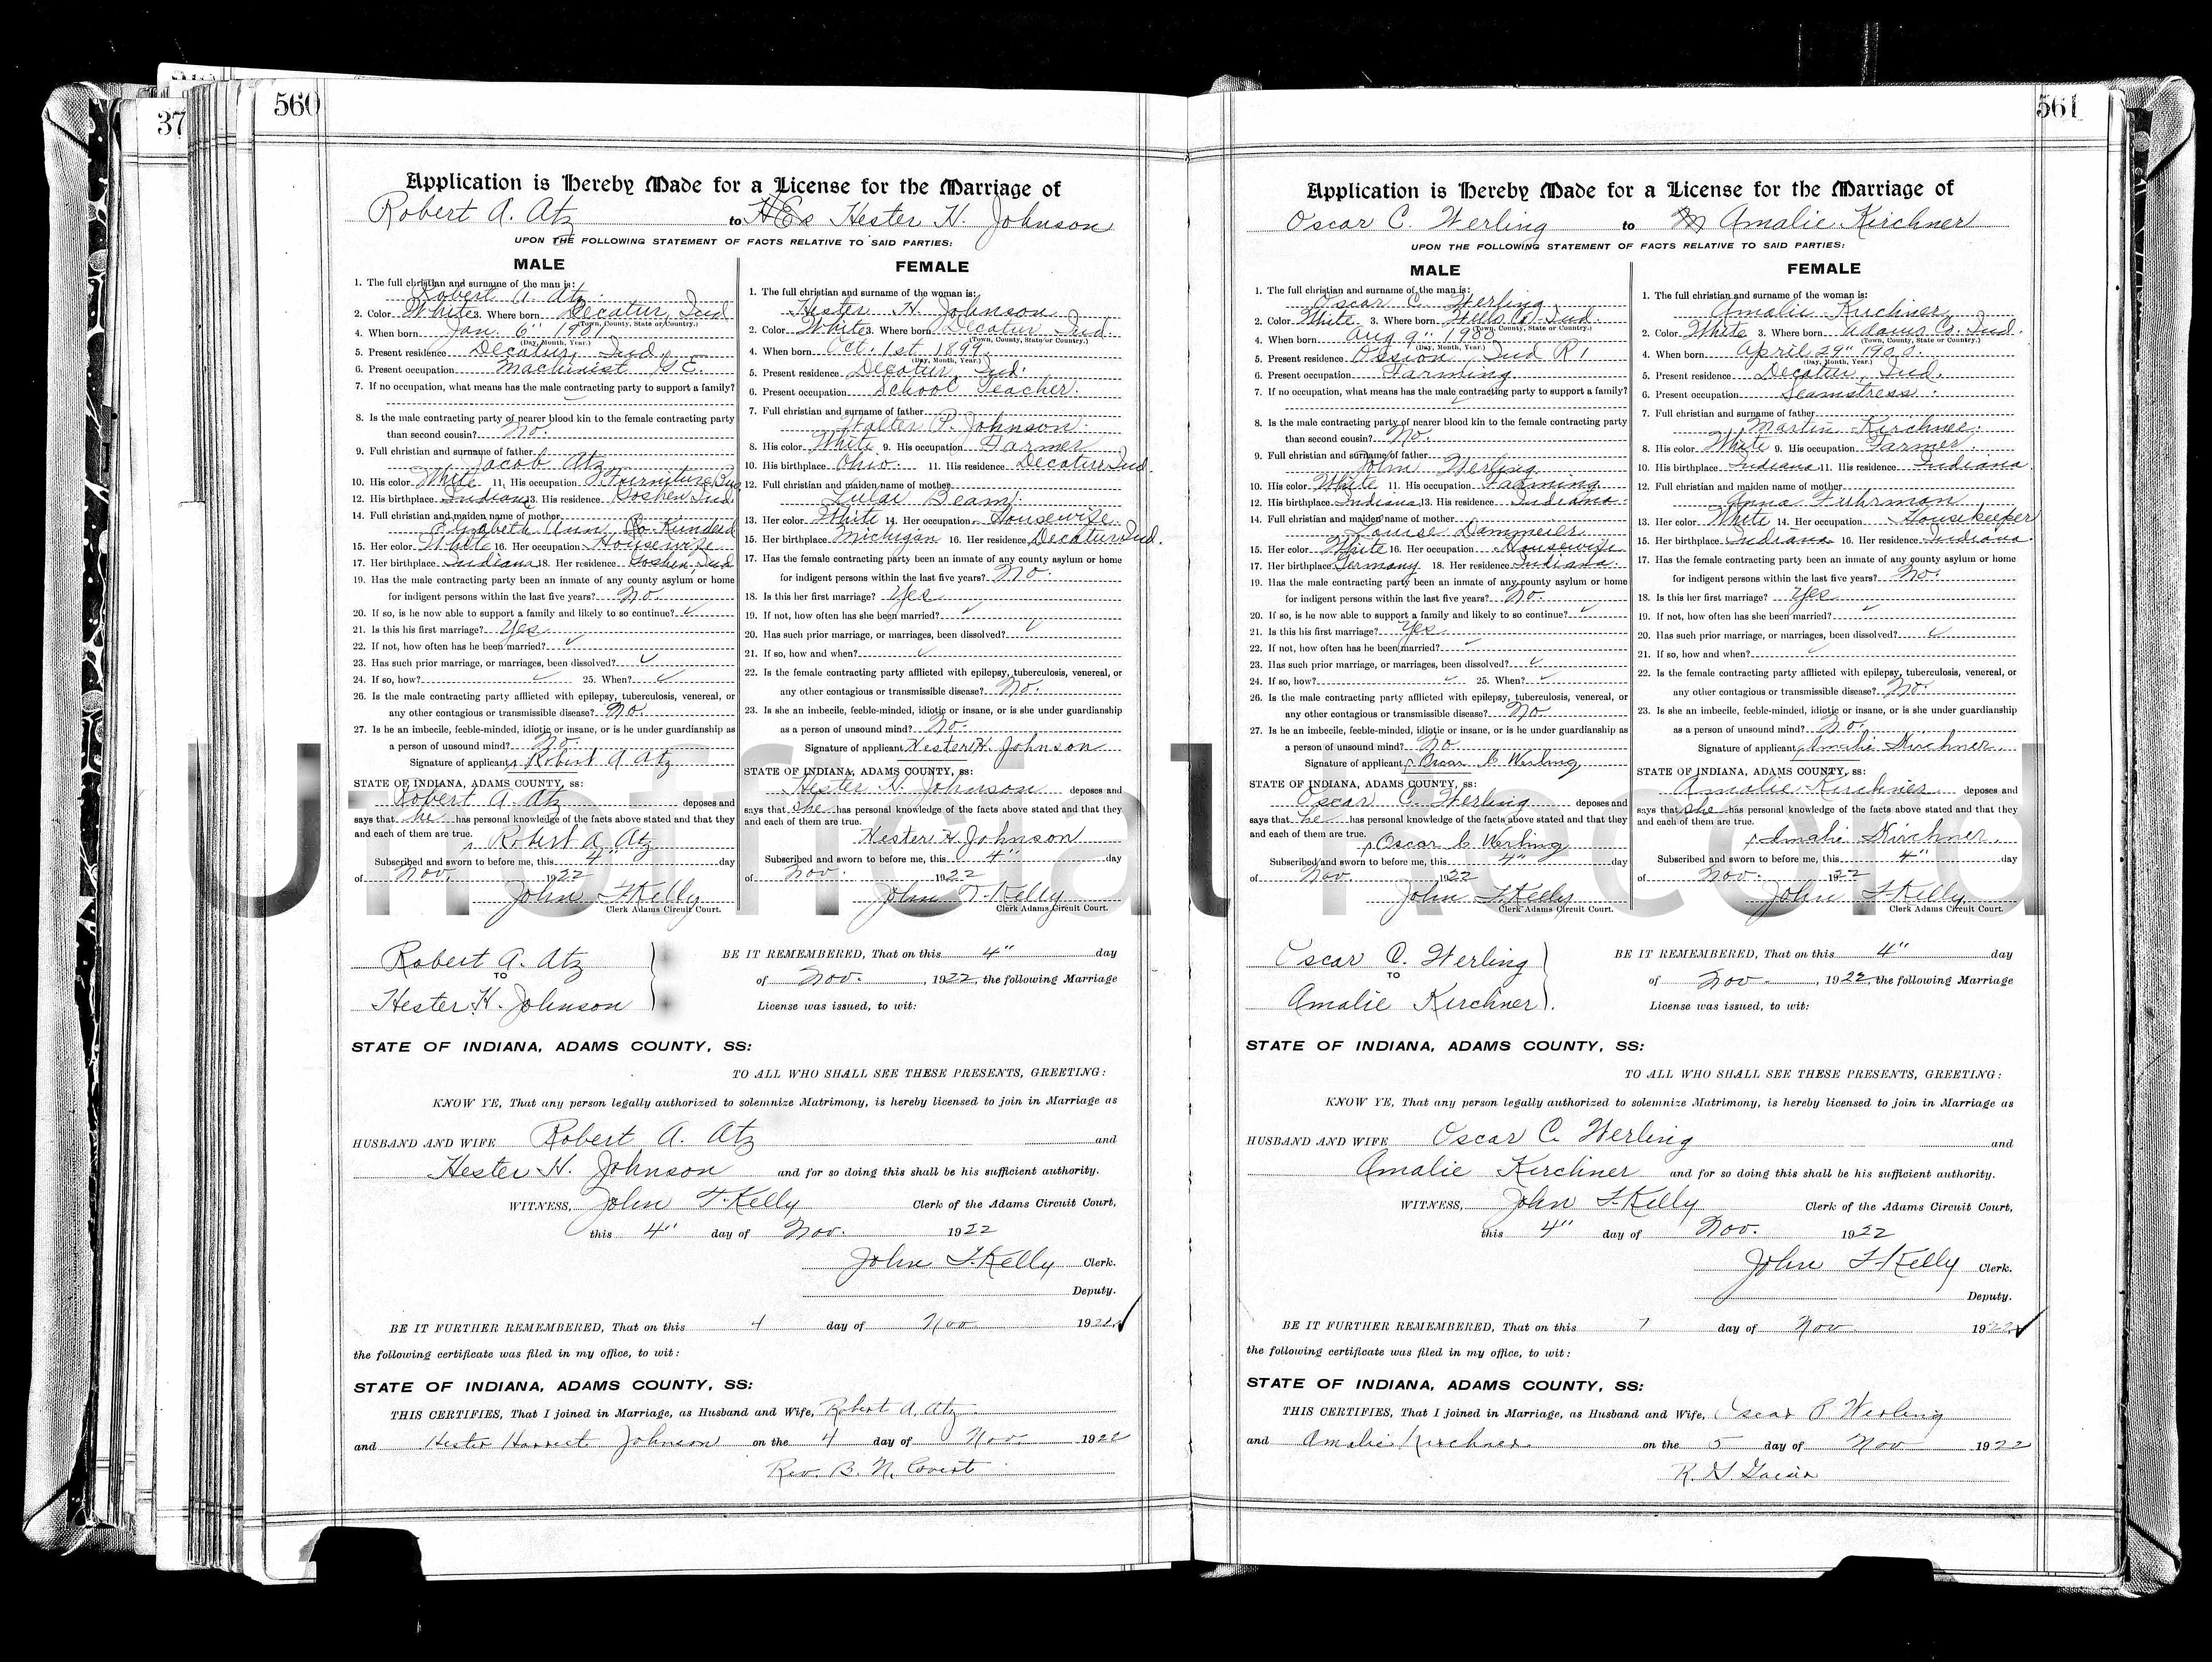 37
560
Application is Hereby Made for a License for the Marriage of
Robert A. Atz to Hester H. Johnson
UPON THE FOLLOWING STATEMENT OF FACTS RELATIVE TO SAID PARTIES:
MALE
1. The full christian and surname of the man is:
Robert A. Atz.
2. Color White 3. Where born Decatur, Ind
(Town, County, State or Country.)
4. When born Jan. 6" 1901
(Day, Month, Year.)
5. Present residence Decatur, Ind.
6. Present occupation Machinist G.E.
7. If no occupation, what means has the male contracting party to support a family?
8. Is the male contracting party of nearer blood kin to the female contracting party
than second cousin? No.
9. Full christian and surname of father
Jacob Atz
10. His color White 11. His occupation Furniture Bus
12. His birthplace Indiana 13. His residence Goshen, Ind.
14. Full christian and maiden name of mother
Elizabeth Ann Kunderd
15. Her color White 16. Her occupation Housewife
17. Her birthplace Indiana 18. Her residence Goshen, Ind
19. Has the male contracting party been an inmate of any county asylum or home
for indigent persons within the last five years? No.
20. If so, is he now able to support a family and likely to so continue? ✓
21. Is this his first marriage? Yes
22. If not, how often has he been married? ✓
23. Has such prior marriage, or marriages, been dissolved? ✓
24. If so, how? ✓ 25. When? ✓
26. Is the male contracting party afflicted with epilepsy, tuberculosis, venereal, or
any other contagious or transmissible disease? No.
27. Is he an imbecile, feeble-minded, idiotic or insane, or is he under guardianship as
a person of unsound mind? No.
Signature of applicant Robert A Atz
STATE OF INDIANA, ADAMS COUNTY, ss:
Robert A. Atz deposes and
says that he has personal knowledge of the facts above stated and that they
and each of them are true.
Robert A. Atz
Subscribed and sworn to before me, this 4" day
of Nov. 1922
John F. Kelly
Clerk Adams Circuit Court.
FEMALE
1. The full christian and surname of the woman is:
Hester H. Johnson
2. Color White 3. Where born Decatur Ind.
(Town, County, State or Country.)
4. When born Oct. 1st 1899.
(Day, Month, Year.)
5. Present residence Decatur, Ind.
6. Present occupation School Teacher.
7. Full christian and surname of father
Walter P. Johnson.
8. His color White 9. His occupation Farmer
10. His birthplace Ohio. 11. His residence Decatur Ind.
12. Full christian and maiden name of mother
Lulai Beam.
13. Her color White 14. Her occupation Housewife
15. Her birthplace Michigan 16. Her residence Decatur Ind.
17. Has the female contracting party been an inmate of any county asylum or home
for indigent persons within the last five years? No.
18. Is this her first marriage? Yes
19. If not, how often has she been married? ✓
20. Has such prior marriage, or marriages, been dissolved? ✓
21. If so, how and when? ✓
22. Is the female contracting party afflicted with epilepsy, tuberculosis, venereal, or
any other contagious or transmissible disease? No.
23. Is she an imbecile, feeble-minded, idiotic or insane, or is she under guardianship
as a person of unsound mind? No.
Signature of applicant Hester H. Johnson
STATE OF INDIANA, ADAMS COUNTY, ss:
Hester H. Johnson deposes and
says that she has personal knowledge of the facts above stated and that they
and each of them are true.
Hester H. Johnson
Subscribed and sworn to before me, this 4" day
of Nov. 1922
John F. Kelly
Clerk Adams Circuit Court.
Robert A. Atz
TO
Hester H. Johnson
BE IT REMEMBERED, That on this 4" day
of Nov. , 1922, the following Marriage
License was issued, to wit:
STATE OF INDIANA, ADAMS COUNTY, SS:
TO ALL WHO SHALL SEE THESE PRESENTS, GREETING:
KNOW YE, That any person legally authorized to solemnize Matrimony, is hereby licensed to join in Marriage as
HUSBAND AND WIFE Robert A. Atz and
Hester H. Johnson and for so doing this shall be his sufficient authority.
WITNESS, John F. Kelly Clerk of the Adams Circuit Court,
this 4" day of Nov. 1922
John F. Kelly Clerk.
Deputy.
BE IT FURTHER REMEMBERED, That on this 4 day of Nov 1922 ✓
the following certificate was filed in my office, to wit:
STATE OF INDIANA, ADAMS COUNTY, SS:
THIS CERTIFIES, That I joined in Marriage, as Husband and Wife, Robert A. Atz
and Hester Harriet Johnson on the 4 day of Nov. 1922
Rev. B. N. Covert
561
Application is Hereby Made for a License for the Marriage of
Oscar C. Werling to Amalie Kirchner
UPON THE FOLLOWING STATEMENT OF FACTS RELATIVE TO SAID PARTIES:
MALE
1. The full christian and surname of the man is:
Oscar C. Werling
2. Color White 3. Where born Wells Co. Ind.
(Town, County, State or Country.)
4. When born Aug 9" 1900
5. Present residence Ossian Ind R1
6. Present occupation Farming
7. If no occupation, what means has the male contracting party to support a family?
8. Is the male contracting party of nearer blood kin to the female contracting party
than second cousin? No.
9. Full christian and surname of father
John Werling
10. His color White 11. His occupation Farming
12. His birthplace Indiana 13. His residence Indiana.
14. Full christian and maiden name of mother
Louise Dammeier
15. Her color White 16. Her occupation Housewife
17. Her birthplace Germany 18. Her residence Indiana.
19. Has the male contracting party been an inmate of any county asylum or home
for indigent persons within the last five years? No.
20. If so, is he now able to support a family and likely to so continue? ✓
21. Is this his first marriage? Yes
22. If not, how often has he been married? ✓
23. Has such prior marriage, or marriages, been dissolved? ✓
24. If so, how? ✓ 25. When? ✓
26. Is the male contracting party afflicted with epilepsy, tuberculosis, venereal, or
any other contagious or transmissible disease? No
27. Is he an imbecile, feeble-minded, idiotic or insane, or is he under guardianship as
a person of unsound mind? No
Signature of applicant Oscar C Werling
STATE OF INDIANA, ADAMS COUNTY, ss:
Oscar C. Werling deposes and
says that he has personal knowledge of the facts above stated and that they
and each of them are true.
Oscar C Werling
Subscribed and sworn to before me, this 4" day
of Nov. 1922
John F. Kelly
Clerk Adams Circuit Court.
FEMALE
1. The full christian and surname of the woman is:
Amalie Kirchner
2. Color White 3. Where born Adams Co. Ind.
(Town, County, State or Country.)
4. When born April 29" 1900.
(Day, Month, Year.)
5. Present residence Decatur, Ind.
6. Present occupation Seamstress.
7. Full christian and surname of father
Martin Kirchner.
8. His color White 9. His occupation Farmer.
10. His birthplace Indiana 11. His residence Indiana.
12. Full christian and maiden name of mother
Anna Fuhrman
13. Her color White 14. Her occupation Housekeeper
15. Her birthplace Indiana 16. Her residence Indiana.
17. Has the female contracting party been an inmate of any county asylum or home
for indigent persons within the last five years? No.
18. Is this her first marriage? Yes
19. If not, how often has she been married? ✓
20. Has such prior marriage, or marriages, been dissolved? ✓
21. If so, how and when? ✓
22. Is the female contracting party afflicted with epilepsy, tuberculosis, venereal, or
any other contagious or transmissible disease? No.
23. Is she an imbecile, feeble-minded, idiotic or insane, or is she under guardianship
as a person of unsound mind? No.
Signature of applicant Amalie Kirchner
STATE OF INDIANA, ADAMS COUNTY, ss:
Amalie Kirchner deposes and
says that she has personal knowledge of the facts above stated and that they
and each of them are true.
Amalie Kirchner.
Subscribed and sworn to before me, this 4" day
of Nov. 1922
John F. Kelly
Clerk Adams Circuit Court.
Oscar C. Werling
TO
Amalie Kirchner
BE IT REMEMBERED, That on this 4" day
of Nov. , 1922, the following Marriage
License was issued, to wit:
STATE OF INDIANA, ADAMS COUNTY, SS:
TO ALL WHO SHALL SEE THESE PRESENTS, GREETING:
KNOW YE, That any person legally authorized to solemnize Matrimony, is hereby licensed to join in Marriage as
HUSBAND AND WIFE Oscar C. Werling and
Amalie Kirchner and for so doing this shall be his sufficient authority.
WITNESS, John F. Kelly Clerk of the Adams Circuit Court,
this 4" day of Nov. 1922
John F. Kelly Clerk.
Deputy.
BE IT FURTHER REMEMBERED, That on this 7 day of Nov 1922 ✓
the following certificate was filed in my office, to wit:
STATE OF INDIANA, ADAMS COUNTY, SS:
THIS CERTIFIES, That I joined in Marriage, as Husband and Wife, Oscar Werling
and Amalie Kirchner on the 5 day of Nov 1922
Unofficial Record